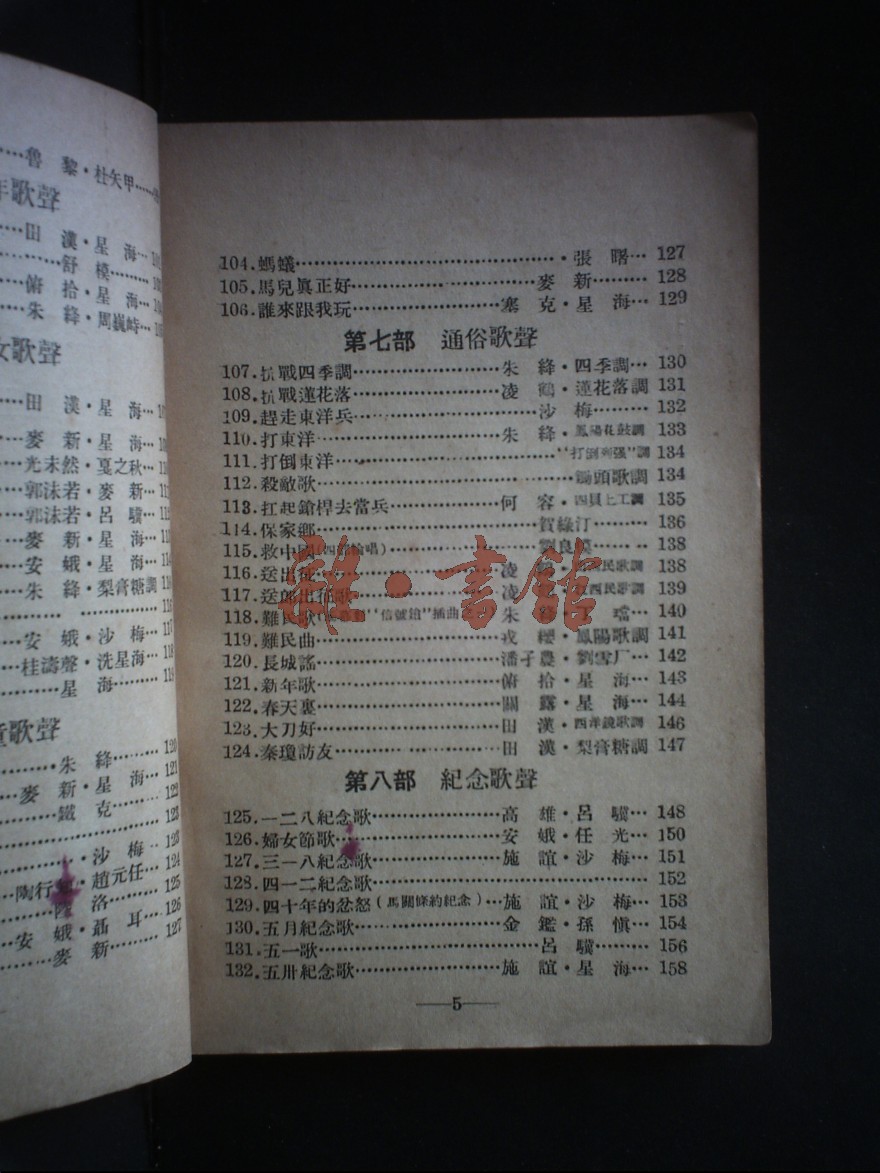 魯 黎・杜矢甲
年歌聲
田 漢・星 海
舒 模
俯 拾・星 海
朱 絳・周巍峙
女歌聲
田 漢・星 海
麥 新・星 海
光未然・戛之秋
郭沫若・麥 新
郭沫若・呂 驥
麥 新・星 海
安 娥・星 海
朱 絳・梨膏糖調
116
安 娥・沙 梅 117
桂濤聲・洗星海 118
星 海
童歌聲
朱 絳 120
麥 新・星 海 121
鐵 克 122
122
沙 梅 123
陶行 ・趙元任 124
洛 125
安 娥・聶 耳 126
麥 新 127
104.螞蟻 張 曙 127
105.馬兒眞正好 麥 新 128
106.誰來跟我玩 塞 克・星 海 129
第七部 通俗歌聲
107.抗戰四季調 朱 絳・四季調 130
108.抗戰蓮花落 凌 鶴・蓮花落調 131
109.趕走東洋兵 沙 梅 132
110.打東洋 朱 絳・鳳陽花鼓調 133
111.打倒東洋 "打倒列强"調 134
112.殺敵歌 鋤頭歌調 134
113.扛起鎗桿去當兵 何 容・四貝上工調 135
114.保家鄉 賀綠汀 136
115.救中國(四部輪唱) 劉良模 138
116.送出征 凌 民歌調 138
117.送郎出征歌 凌 西民歌調 139
118.難民歌 "信號鎗"插曲 朱 絳・ 140
119.難民曲 戎 纓・鳳陽歌調 141
120.長城謠 潘孑農・劉雪厂 142
121.新年歌 俯 拾・星 海 143
122.春天裏 關 露・星 海 144
123.大刀好 田 漢・四 歌調 146
124.秦瓊訪友 田 漢・梨膏糖調 147
第八部 紀念歌聲
125.一二八紀念歌 高 雄・呂 驥 148
126.婦女節歌 安 娥・任 光 150
127.三一八紀念歌 施 誼・沙 梅 151
128.四一二紀念歌 152
129.四十年的忿怒(馬關條約紀念) 施 誼・沙 梅 153
130.五月紀念歌 金 鑑・孫 愼 154
131.五一歌 呂 驥 156
132.五卅紀念歌 施 誼・星 海 158
—5—
雜・書館